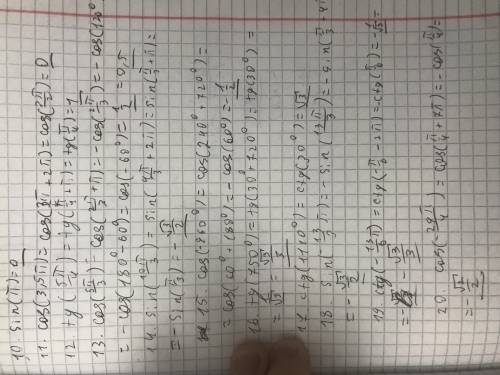 10. sin(π)=0
11. cos(3,5π)=cos(3π/2+2π)=cos(3π/2)=0
12. tg(5π/4)=tg(π/4+π)=tg(π/4)=1
13. cos(5π/3)=cos(2π/3+π)=-cos(2π/3)=-cos(120°
=-cos(180°-60°)=cos(-60°)=1/2=0,5
14. sin(10π/3)=sin(4π/3+2π)=sin(π/3+π)=
=-sin(π/3)=-√3/2
15 cos(-960°)=cos(240°+720°)=
=cos(60°+180°)=-cos(60°)=-1/2
16. tg(750°)=tg(30°+720°)=tg(30°)=
=1/√3=√3/3
17. ctg(1110°)=ctg(30°)=√3
18. sin(-13/3π)=-sin(13π/3)=-sin(π/3+4π
=-√3/2
19. ctg(-13/6π)=ctg(-π/6-2π)=ctg(π/6)=-1/√3=
=-√3/3
20. cos(-29π/4)=cos(π/4+7π)=-cos(π/4)=
=-√2/2